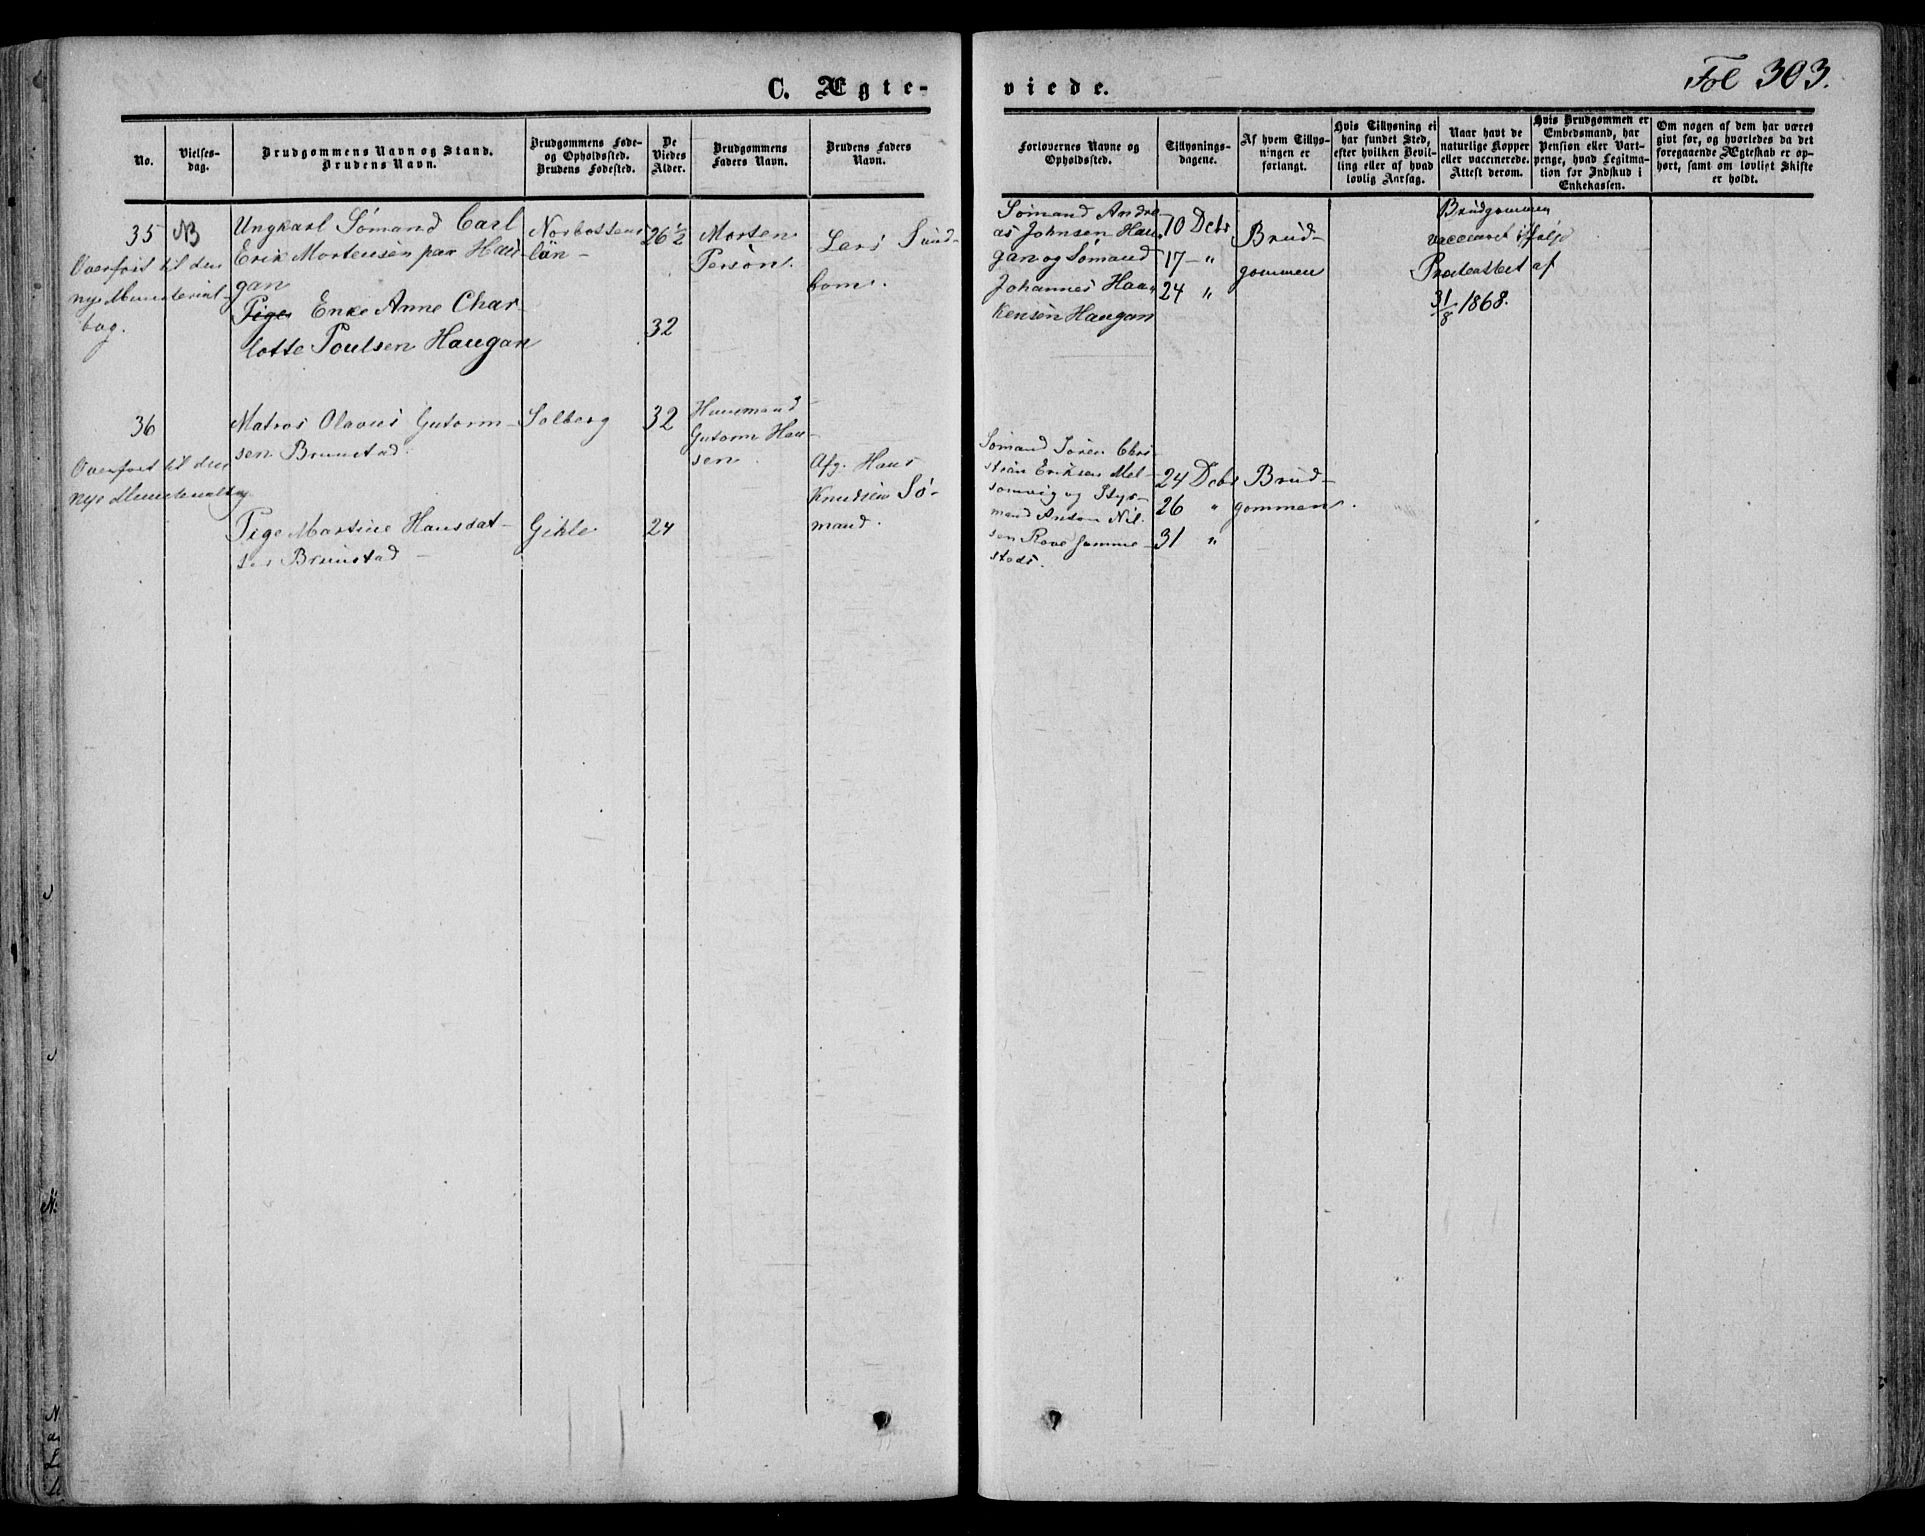 C. Ægte-
viede.
Fol 303.
No.
Vielses-
dag.
Brudgommens Navn og Stand.
Brudens Navn.
Brudgommens Føde-
og Opholdssted.
Brudens Fødested.
De
Viedes
Alder.
Brudgommens
Faders Navn.
Brudens Faders
Navn.
Forlovernes Navne og
Opholdssted.
Tillysnings-
dagene.
Af hvem Tillys-
ningen er
forlangt.
Hvis Tillysning ei
har fundet Sted,
efter hvilken Bevil-
ling eller af hvad
lovlig Aarsag.
Naar havt de
naturlige Kopper
eller vaccinerede.
Attest derom.
Hvis Brudgommen er
Embedsmand, har
Pension eller Vart-
penge, hvad Legitma-
tion for Indskud i
Enkekassen.
Om nogen af dem har været
givt før, og hvorledes da det
foregaaende Ægteskab er op-
hørt, samt om lovligt Skifte
er holdt.
35
NB
Overført til den
nye Ministerial-
bog.
Ungkarl Sömand Carl
Erik Mortensen paa Hau-
gan
Pige Enke Anne Char-
lotte Poulsen Haugan
Norbottens
län
26 1/2
32
Morten
Person
Lars Sund-
bom.
Sömand Andre-
as Johnsen Hau-
gan og Sömand
Johannes Haa-
kensen Haugan
10 Debr
17 - "
24 "
Brud-
gommen
Brudgommen
vaccineret ifølge
af
31/8 1868.
36
Overfört til den
nye Ministerialbog
Matros Olavus Gutorm-
sen Brunstad.
Pige Martine Hansdat-
ter Brunstad
Solberg
Gikle
32
24
Huusmand
Gutorm Han-
sen
Afg. Hans
Knudsen Sö-
mand.
Sömand Sören Chri-
stian Eriksen Mel-
somvig og Styr-
mand Anton Nil-
sen Rove
stads.
24 Debr
26 "
31 "
Brud-
gommen.